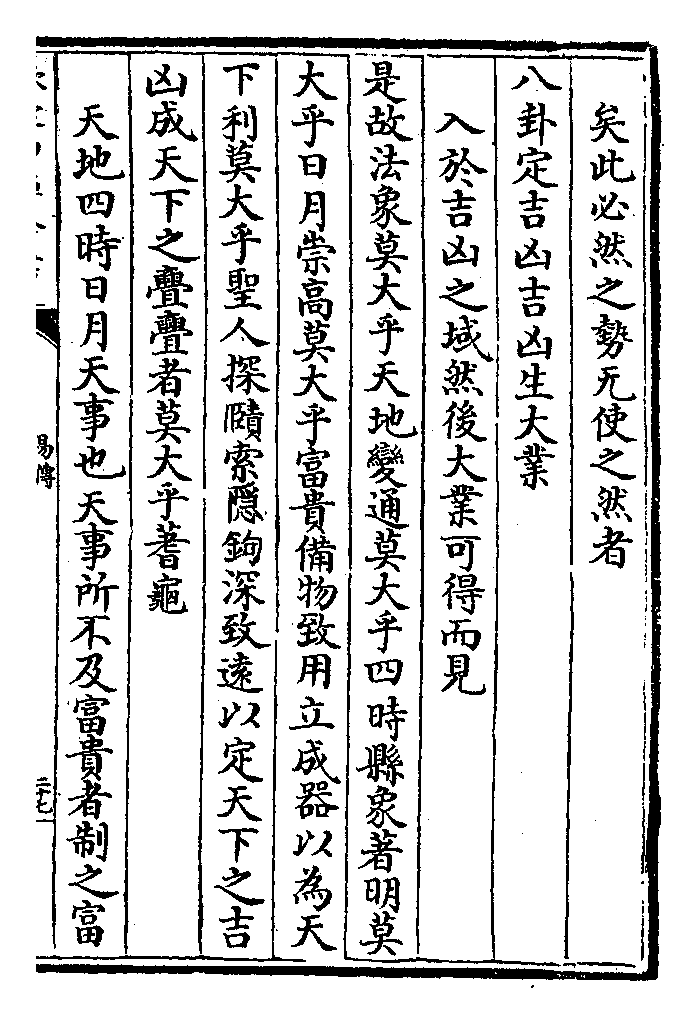 矣此必然之勢无使之然者
八卦定吉凶吉凶生大業
入於吉凶之域然後大業可得而見
是故法象莫大乎天地變通莫大乎四時縣象著明莫
大乎日月崇高莫大乎富貴備物致用立成器以為天
下利莫大乎聖人探賾索隱鉤深致遠以定天下之吉
凶成天下之亹亹者莫大乎蓍龜
天地四時日月天事也天事所不及富貴者制之富
易傳
二十七